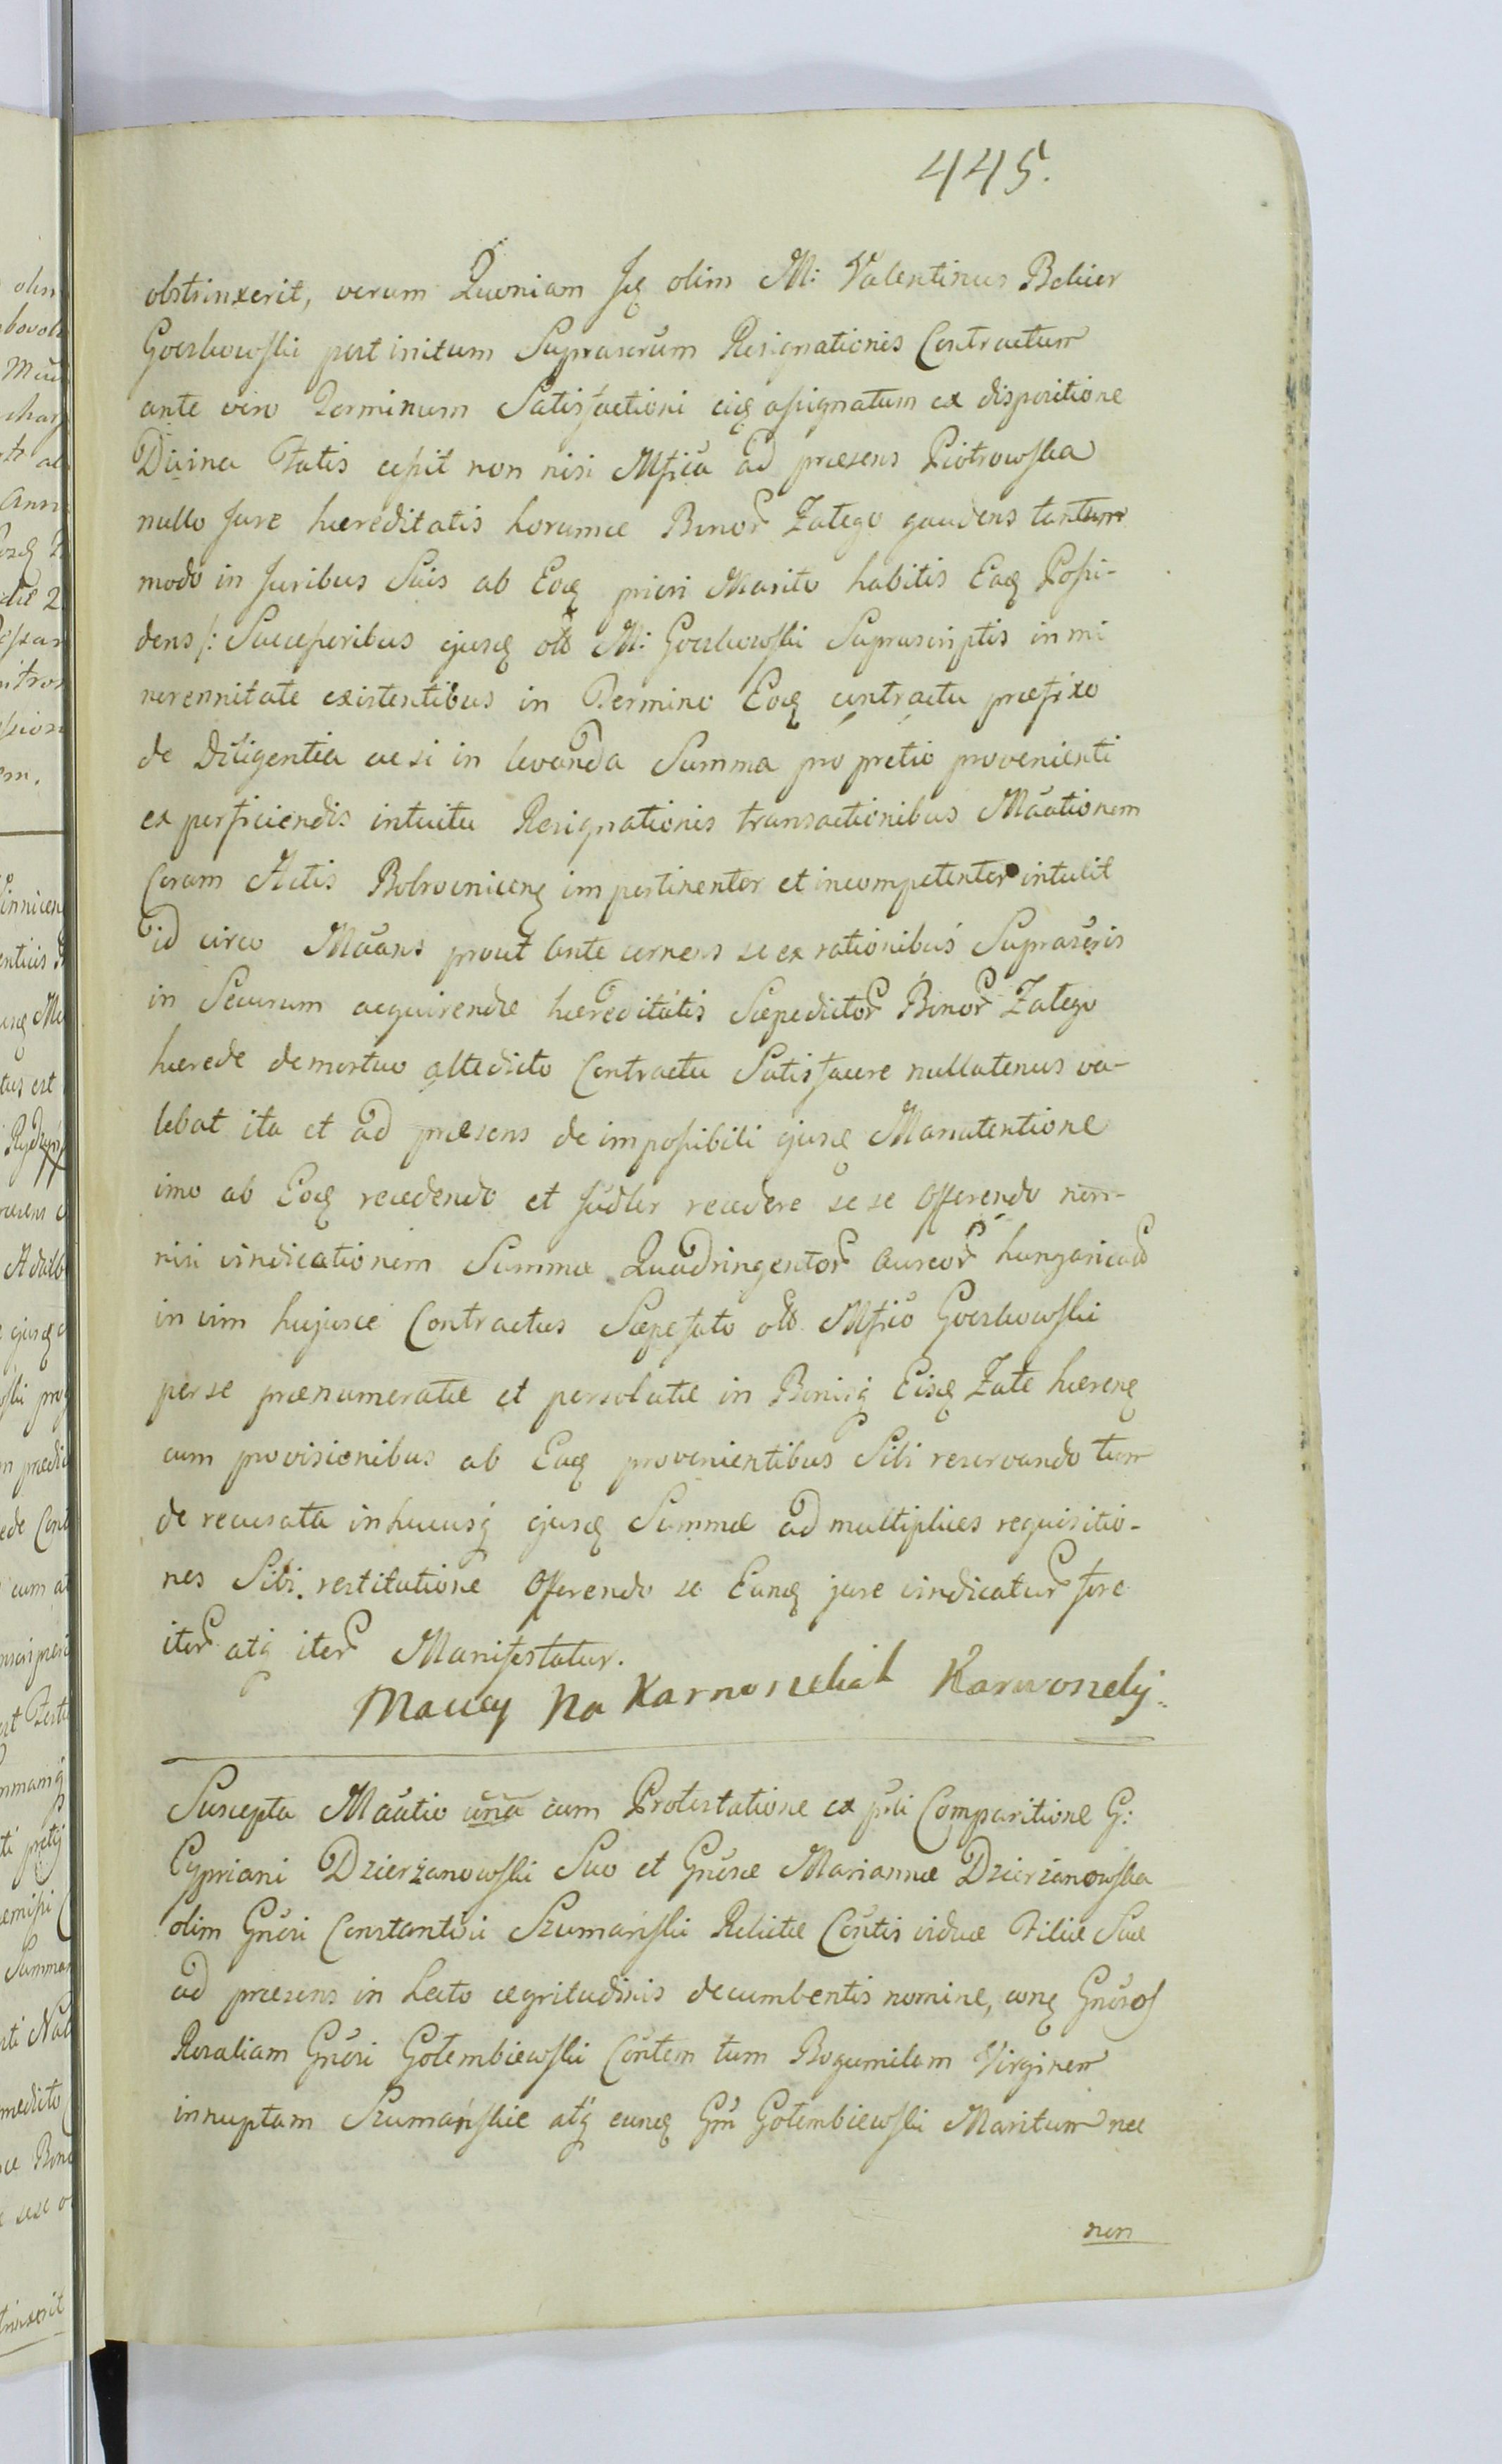 445.
obstrinxerit, verum Quoniam Jdq olim M: Valentinus Belier
Goczkowski post initum Suprascrum Resignationis Contractum
ante vero Terminum Satisfactioni eidq assignatum ex dispositione
Divina Fatis cessit non nisi Mfica ad præsens Piotrowska
nullo Jure hæreditatis horumce Bonor Zatego gaudens tantum
modo in Juribus Suis ab Eodq priori Marito habitis Eadq Possi-
dens /: Successoribus ejusdq olb M: Goczkowski Suprascriptis in mi
norennitate existentibus in Termino Eodq contractu præfixo
de Diligentia ac si in levanda Summa pro pretio provenienti
ex perficiendis intuitu Resignationis transactionibus Mãationem
Coram Actis Bobrovnicenq impertinenter et incompetenter intulit
id circo Mãans prout ante cernens se ex rationibus Suprascris
in Securum acquirendæ hæreditatis Sæpedictor Bonor Zatego
hærede demortuo altedicto Contractu Satisfacere nullatenus va-
lebat ita et ad præsens de impossibili ejusdq Manutentione
imo ab Eodq recedendo et Judler recedere se se Offerendo non-
nisi vindicationem Summæ Quadringentor Aureor hungarical
in vim hujusce Contractus Sæpefato olb Mfico Goczkowski
per se prænumeratæ et persolutæ in Bonisq Eisdq Zate hærenq
cum provisionibus ab Eadq provenientibus Sibi reservando tum
de recusata inhucusq ejusdq Summæ ad multiplices requisitio-
nes Sibi restitutione Offerendo se Eandq jure vindicatur fore
iter atq iter Manifestatur.
Maciey Na Karnonskich
Suscepta Mãatio una cum Protestatione ex prli Comparitione G:
Cypriani Dzierżanowski Suo et Gnosæ Mariannæ Dzierżanowska
olim Gnosi Constantini Szumański Relictæ Contis viduæ Filiæ Suæ
ad præsens in Lecto ægritudinis decumbentis nomine, conq Gnosos
Rosaliam Gnosi Gołembiewski Contem tum Bogumilam Virginem
innuptam Szumańskie atq eundq Gm Gołembiewski Maritum nec
non